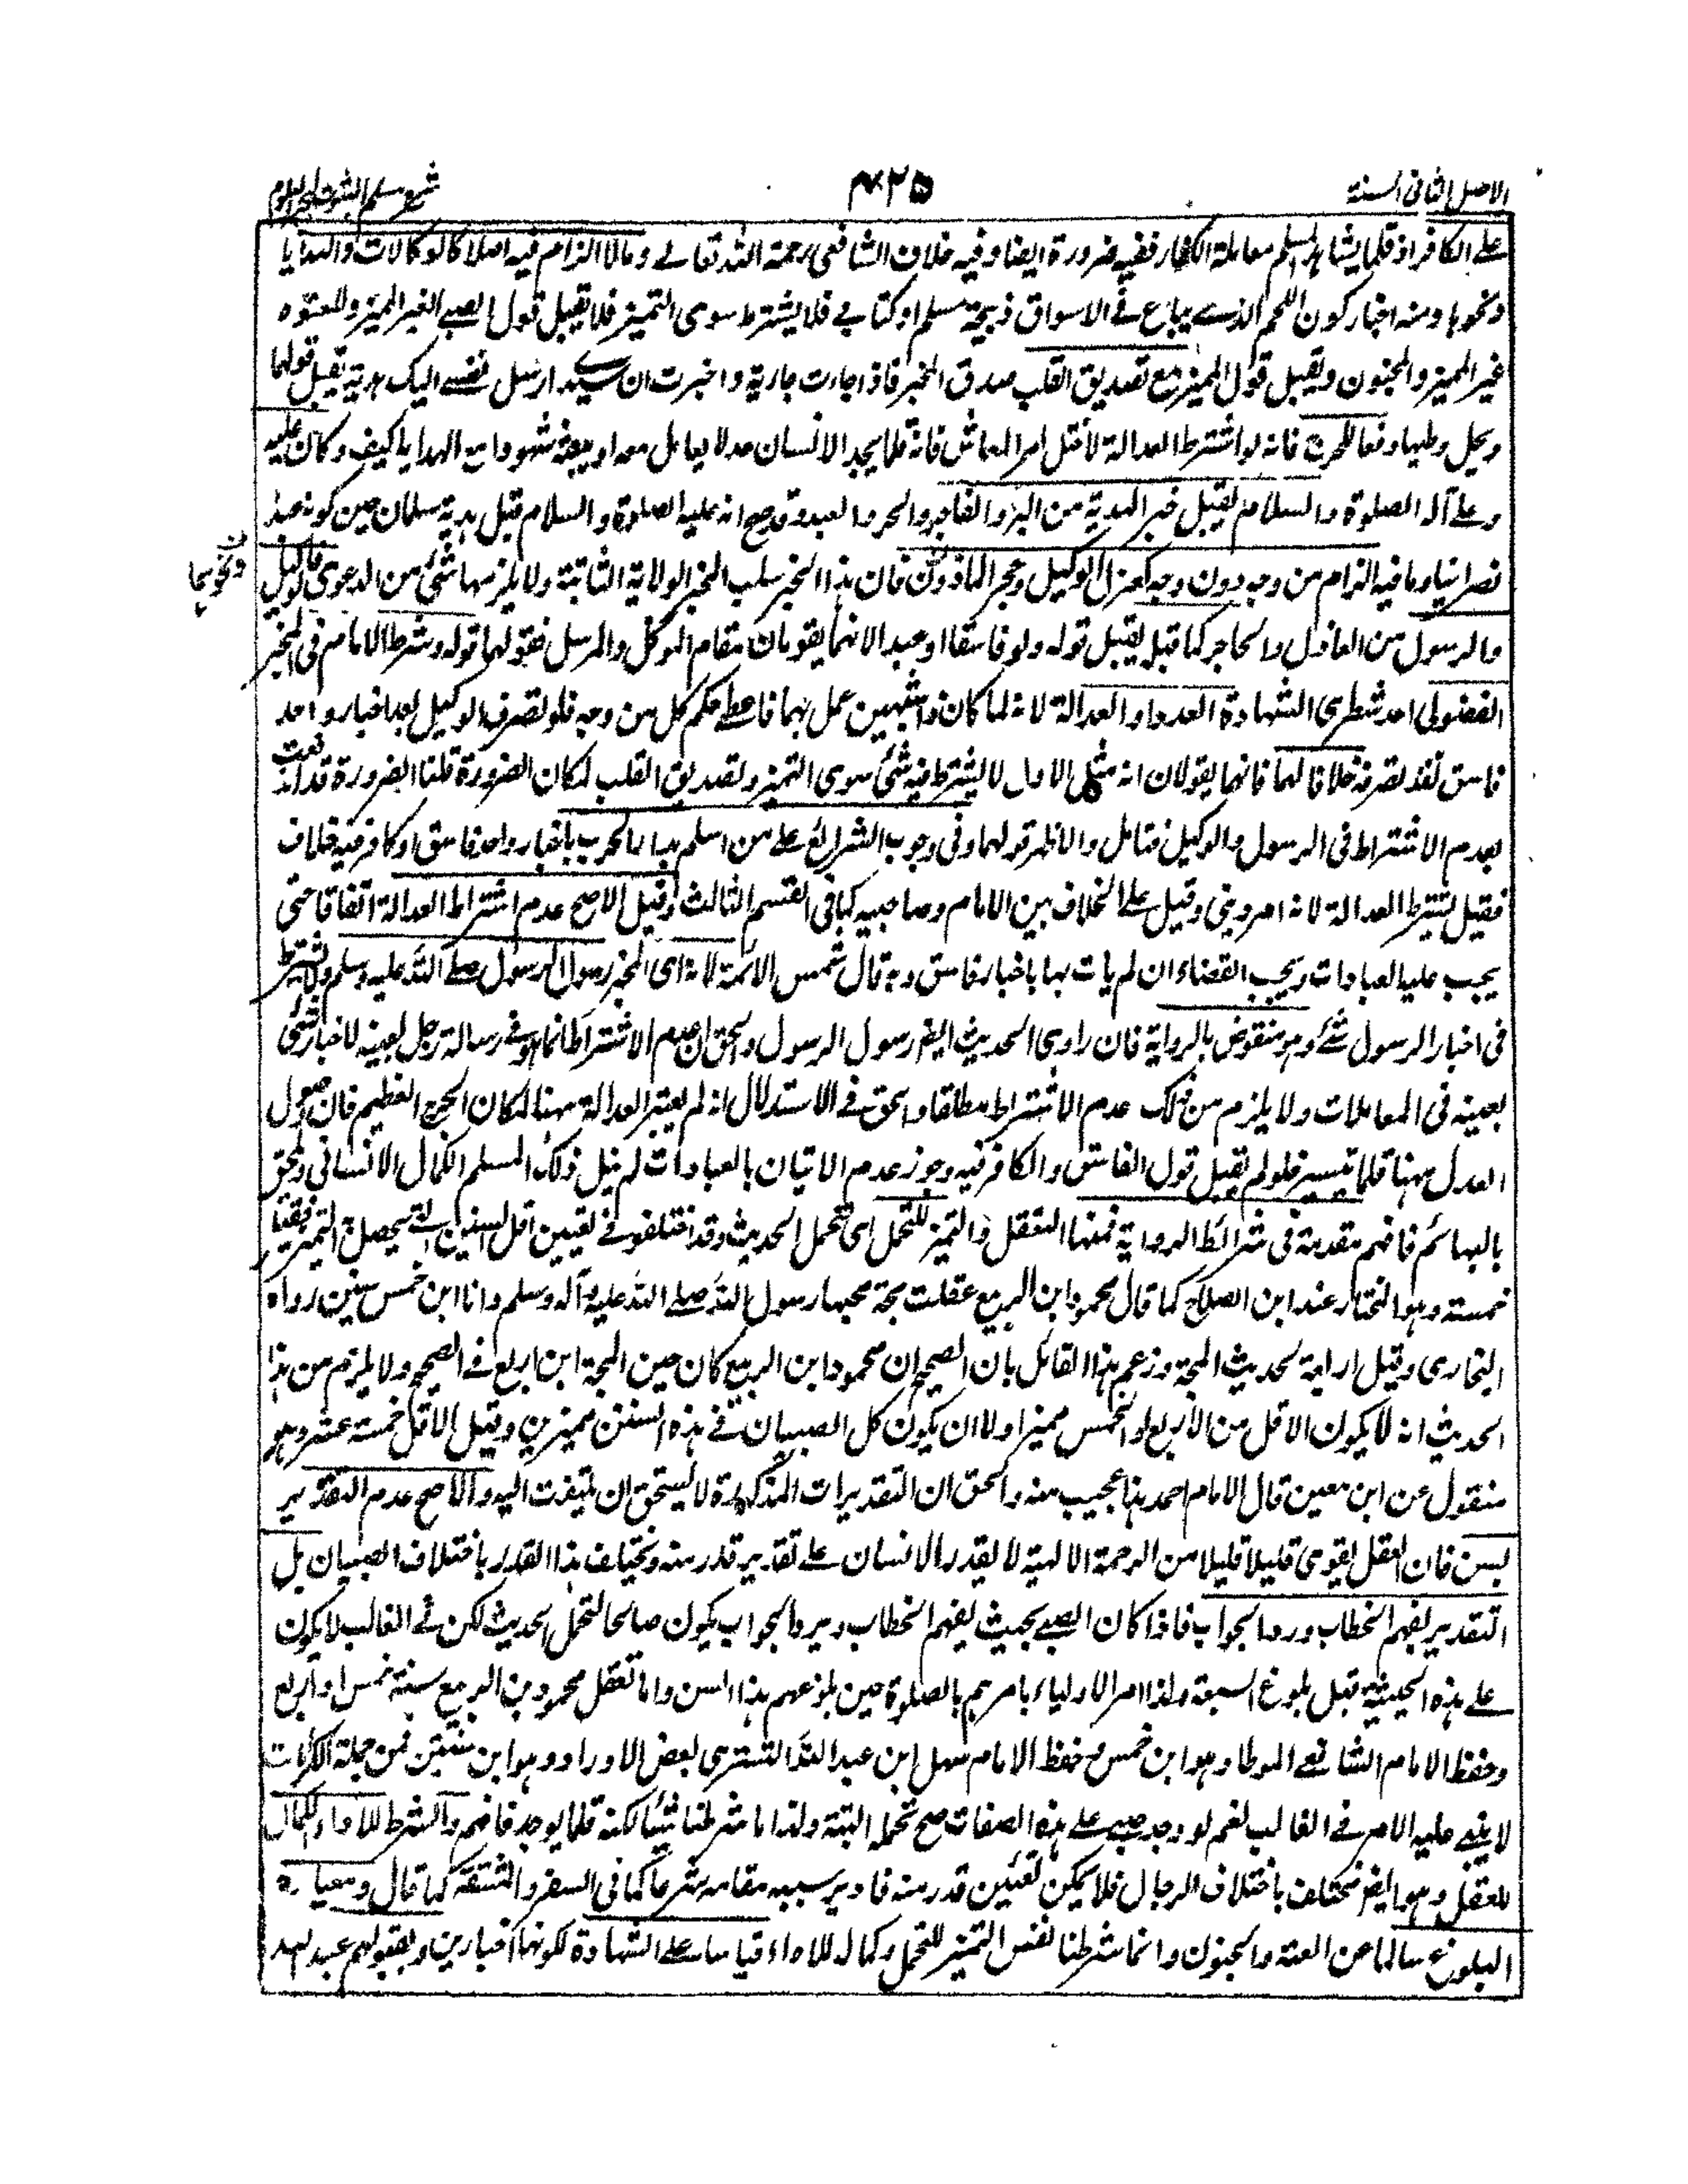 الاصل الثانی السنة
۴۲۵
شرح مسلم الثبوت لبحر العلوم
علی الکافر اذ قلما یشاہد المسلم معاملة الکفار ففیه ضرورة ایضا وفیه خلاف الشافعی رحمة اللہ تعالے ومالا الزام فیه اصلا کالوکالات والہدایا
ونحوہا ومنه اخبار کون اللحم الذی یباع فی الاسواق ذبیحة مسلم او کتابی فلا یشترط سوی التمییز فلا یقبل قول الصبی الغیر الممیز والمعتوہ
غیر الممیز والمجنون ویقبل قول الممیز مع تصدیق القلب صدق المخبر فاذا جاءت جاریة واخبرت ان سیدے ارسل نفسے الیک ہدیة یقبل قولہا
ویحل وطیہا دفعا للحرج فانه لو اشترط العدالة لاختل امر المعاش فانه قلما یجد الانسان عدلا یعامل معه او یبعثه شہودا مع الہدایا کیف وکان علیه
وعلے آله الصلوة والسلام یقبل خبر الہدیة من البر والفاجر والحر والعبد وقد صح انه علیه الصلوة والسلام قبل ہدیة سلمان حین کونه عبدا
نصرانیا وما فیه الزام من وجه دون وجه کعزل الوکیل وحجر الماذون فان ہذا الخبر سلب المخبر الولایة الثابتة ولا یلزمہما شئ من الدعوی فالوکیل
ونحوہما
والرسول من العازل والحاجر کما قبله یقبل قوله ولو فاسقا او عبدا لانہما یقومان مقام الموکل والمرسل فقولہما قوله وشرط الامام فی المخبر
الفضولی احد شطری الشہادة العدد او العدالة لانه لما کان ذا شبہین عمل بہما فاعطے حکم کل من وجه فلو تصرف الوکیل بعد اخبار واحد
فاسق نفذ تصرفه خلافا لہما فانہما یقولان انه مثل الاول لا یشترط فیه شئ سوی التمییز وتصدیق القلب لمکان الضرورة قلنا الضرورة قد اندفعت
بعدم الاشتراط فی الرسول والوکیل فتامل والاظہر قولہما وفی وجوب الشرائع علے من اسلم بدار الحرب باخبار واحد فاسق او کافر فیه خلاف
فقیل یشترط العدالة لانه امر دینی وقیل علے الخلاف بین الامام وصاحبیه کما فی القسم الثالث وقیل الاصح عدم اشتراط العدالة اتفاقا حتی
یجب علیه العبادات ویجب القضاء ان لم یات بہا باخبار فاسق وبه قال شمس الائمة لانه ای المخبر رسول الرسول صلے اللہ علیه وسلم ولا یشترط
فی اخبار الرسول شئ وہو منقوض بالروایة فان راوی الحدیث ایضا رسول الرسول والحق ان عدم الاشتراط انما ہو فی رسالة رجل بعینه لاخبار شئ
بعینه فی المعاملات ولا یلزم من ذلک عدم الاشتراط مطلقا والحق فی الاستدلال انه لم یعتبر العدالة ہہنا لمکان الحرج العظیم فان وصول
العدل ہہنا قلما یتیسر فلو لم یقبل قول الفاسق والکافر فیه وجوز عدم الاتیان بالعبادات لم ینل ذلک المسلم الکمال الانسانی ویلحق
بالبہائم فافہم مقدمة فی شرائط الروایة فمنہا التعقل والتمییز للتحمل ای تحمل الحدیث وقد اختلفوا فی تعیین اقل السنین التی یحصل التمییز فقیل
خمسة وہو المختار عند ابن الصلاح کما قال محمود ابن الربیع عقلت مجة مجہا رسول اللہ صلے اللہ علیه وآله وسلم وانا ابن خمس سنین رواہ
البخاری وقیل اربعة لحدیث المجة وزعم ہذا القائل بان الصحیح ان محمودا بن الربیع کان حین المجة ابن اربع فی الصحیح ولا یلزم من ہذا
الحدیث انه لا یکون الاقل من الاربع او الخمس ممیزا ولا ان یکون کل الصبیان فی ہذہ السنن ممیزین وقیل الاقل خمسة عشر وہو
منقول عن ابن معین قال الامام احمد ہذا عجیب منه والحق ان التقدیرات المذکورة لا یستحق ان یلتفت الیه والاصح عدم التقدیر
بسن فان العقل یقوی قلیلا قلیلا من الرحمة الالہیة لا یقدر الانسان علے تقدیر قدر منه ویختلف ہذا القدر باختلاف الصبیان بل
التقدیر بفہم الخطاب ورد الجواب فاذا کان الصبی بحیث یفہم الخطاب ویرد الجواب یکون صالحا لتحمل الحدیث لکن فی الغالب لا یکون
علے ہذہ الحیثیة قبل بلوغ السبعة ولذا امر الاولیاء بامرہم بالصلوة حین بلوغہم ہذا السن واما تعقل محمود بن الربیع سنة خمس او اربع
وحفظ الامام الشافعی الموطا وہو ابن خمس وحفظ الامام سہل ابن عبد اللہ التستری بعض الاوراد وہو ابن سنتین فمن جملة الکرامات
لا یبنی علیه الامر فی الغالب نعم لو وجد صبی علے ہذہ الصفات صح تحمله البتة ولذا ما شرطنا شیئا لکنه قلما یوجد فافہم والشرط للاداء الکمال
للعقل وہو ایضا مختلف باختلاف الرجال فلا یمکن تعیین قدر منه فادیر سببه مقامه شرعا کما فی السفر والمشقة کما قال ومعیارہ
البلوغ سالما عن العته والجنون وانما شرطنا نفس التمییز للتحمل وکماله للاداء قیاسا علے الشہادة لکونہما اخبارین وبقبولہم عبد اللہ